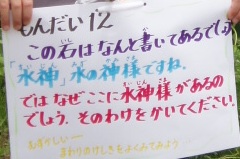 もんだい12
この石はなんと書いてあるでしょう
「水神」水の神様ですね。
ではなぜここに水神様があるの
でしょう。そのわけをかいてください。
むずかしい
まわりのけしきをよくみてみよう